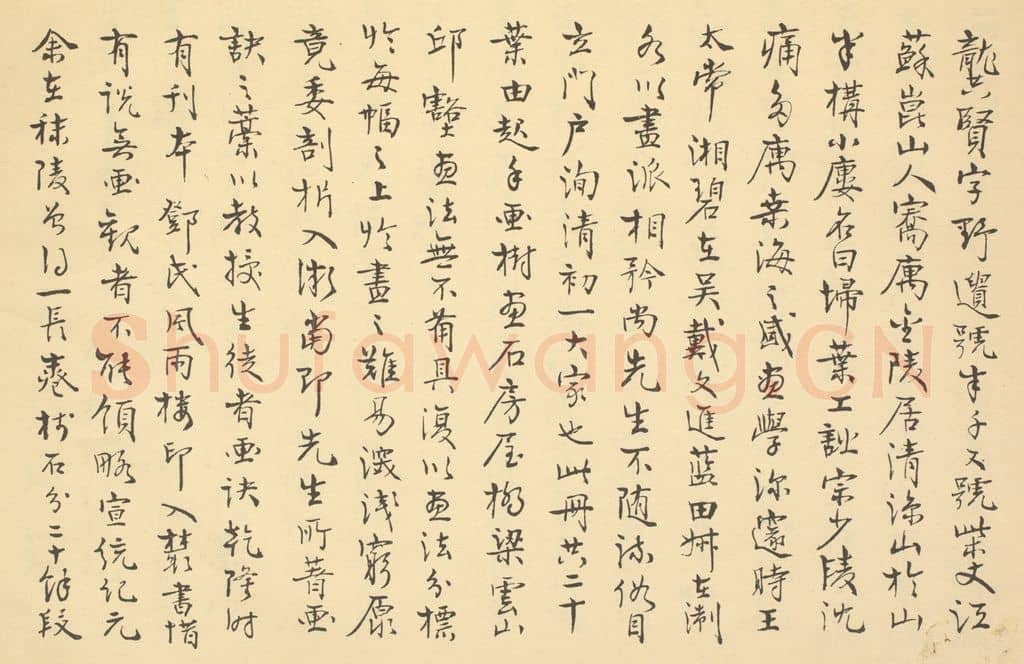 龔賢字野遺號半千又號柴丈江
蘇崑山人僑庽金陵居清涼山於山
半構小廔名曰埽葉工詩宗少陵沈
痛多庽桑海之感畫學深邃時王
太常湘碧在吳戴文進藍田叔在淛
各以畫派相矜尚先生不随流俗自
立門户洵清初一大家也此冊共二十
葉由起手画樹画石房屋橋梁雲山
邱壑画法無不備具復以画法分標
於每幅之上於畫之難易深淺窮原
竟委剖析入微當即先生所著画
訣之藁以教授生徒者画訣乾隆时
有刊本鄧氏風雨樓印入叢書惜
有説無画觀者不能領略宣統紀元
余在秣陵曾得一長卷樹石分二十餘段
Shufawang.CN